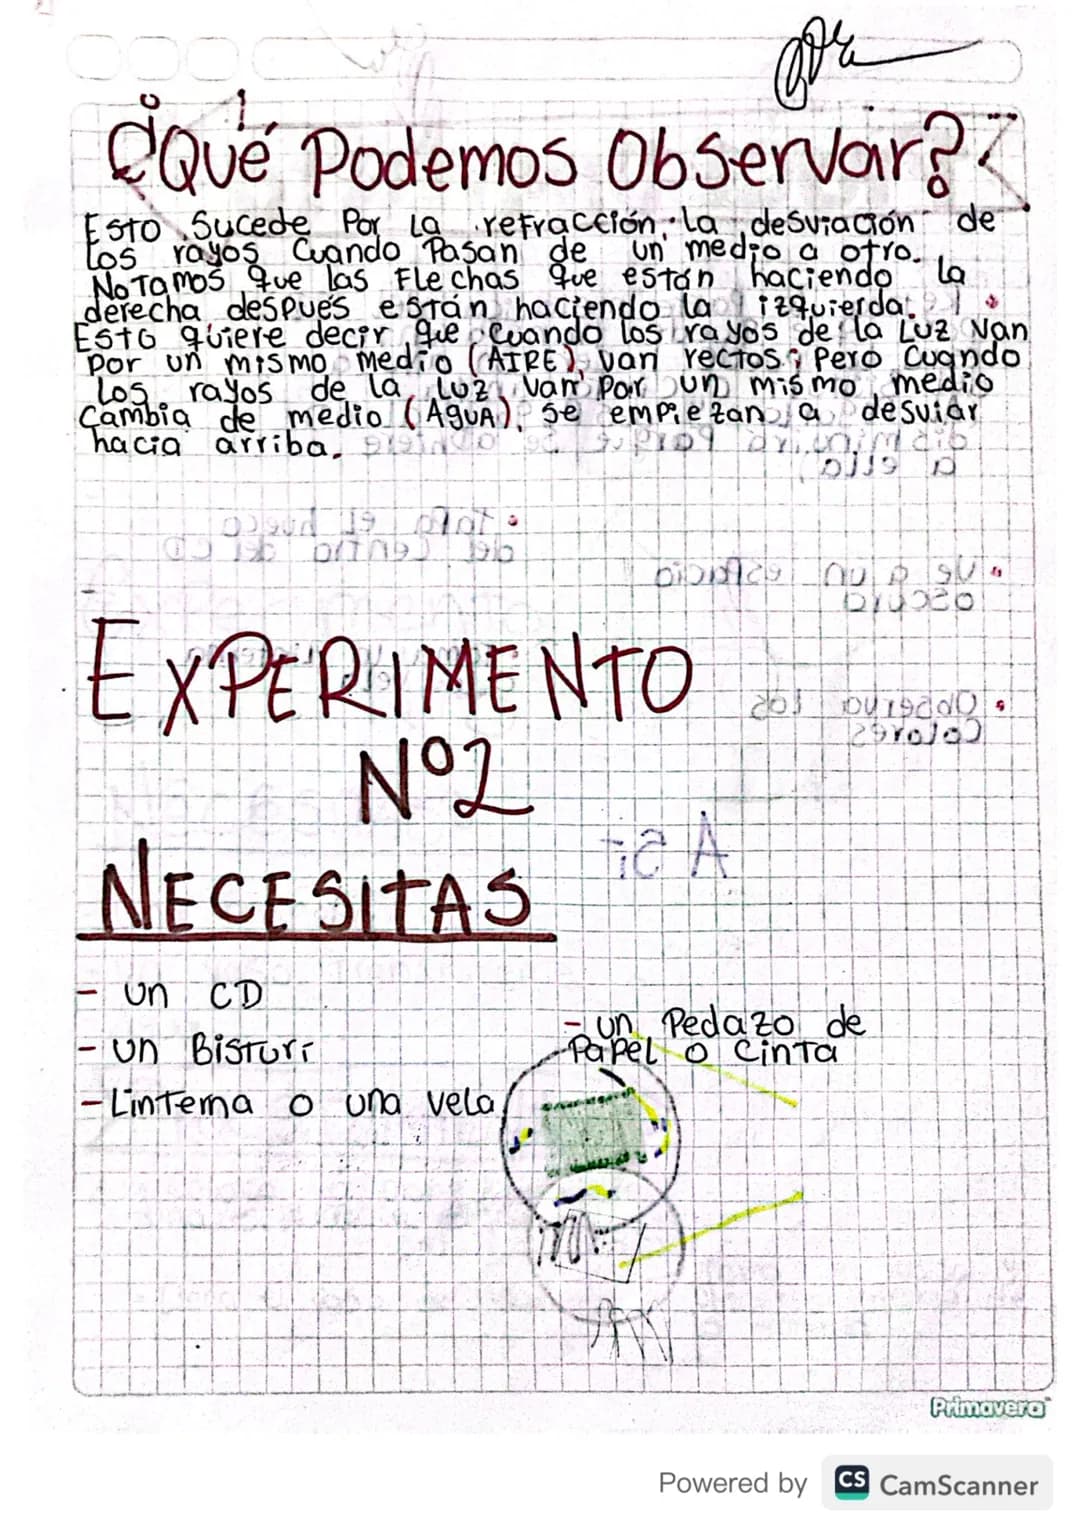 ¿Qué Podemos Observar?
Esto Sucede Por la refracción: la desviación de
los rayos Cuando Pasan de un medio a otro.
Notamos que las Flechas que están haciendo la
derecha después están haciendo la izquierda.
Esto quiere decir que Cuando los rayos de la Luz van
Por un mismo medio (AIRE), van rectos; Pero Cuando
los rayos de la luz van Por un mismo medio
Cambia de medio (AGUA), se empiezan a desviar
hacia arriba.
EXPERIMENTO
Nº2
NECESITAS
- un CD
- un Bisturí
- Linterna o una vela
- un Pedazo de
Papel o Cinta
Primavera
Powered by CS CamScanner